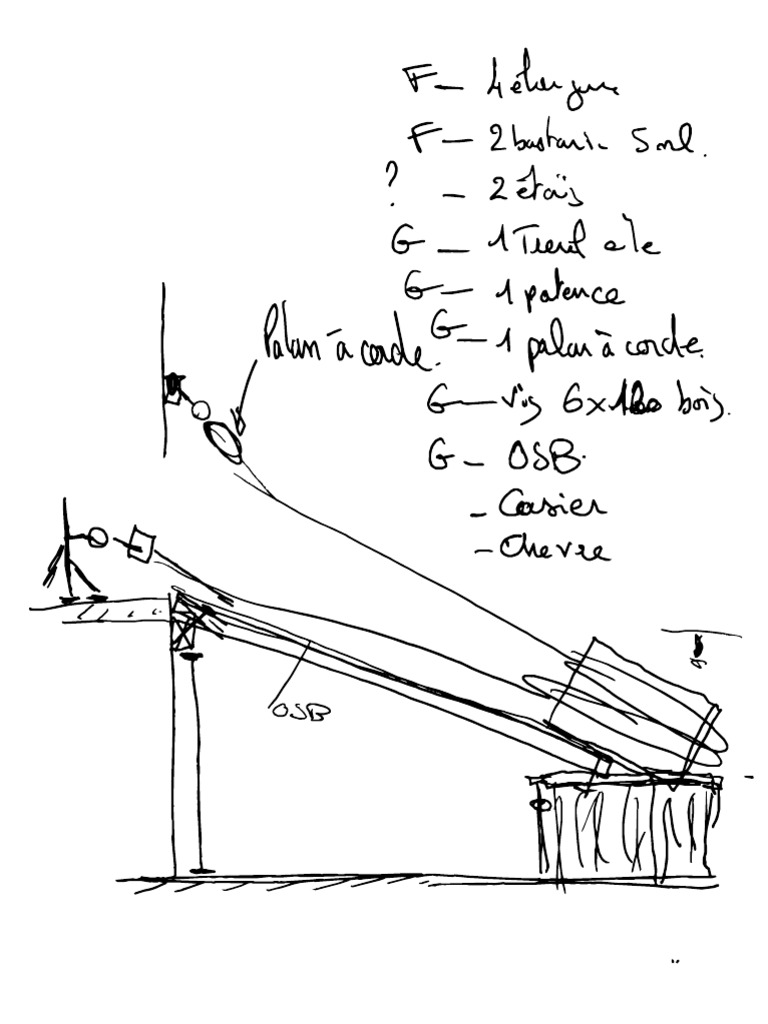 F - 4 élingues
F - 2 bastain - 5 ml.
? - 2 étais
G - 1 Treuil
G - 1 potence
G - 1 palan à corde.
G - vis 6x bois.
G - OSB.
- Casier
- Chevre
Palan à corde.
OSB